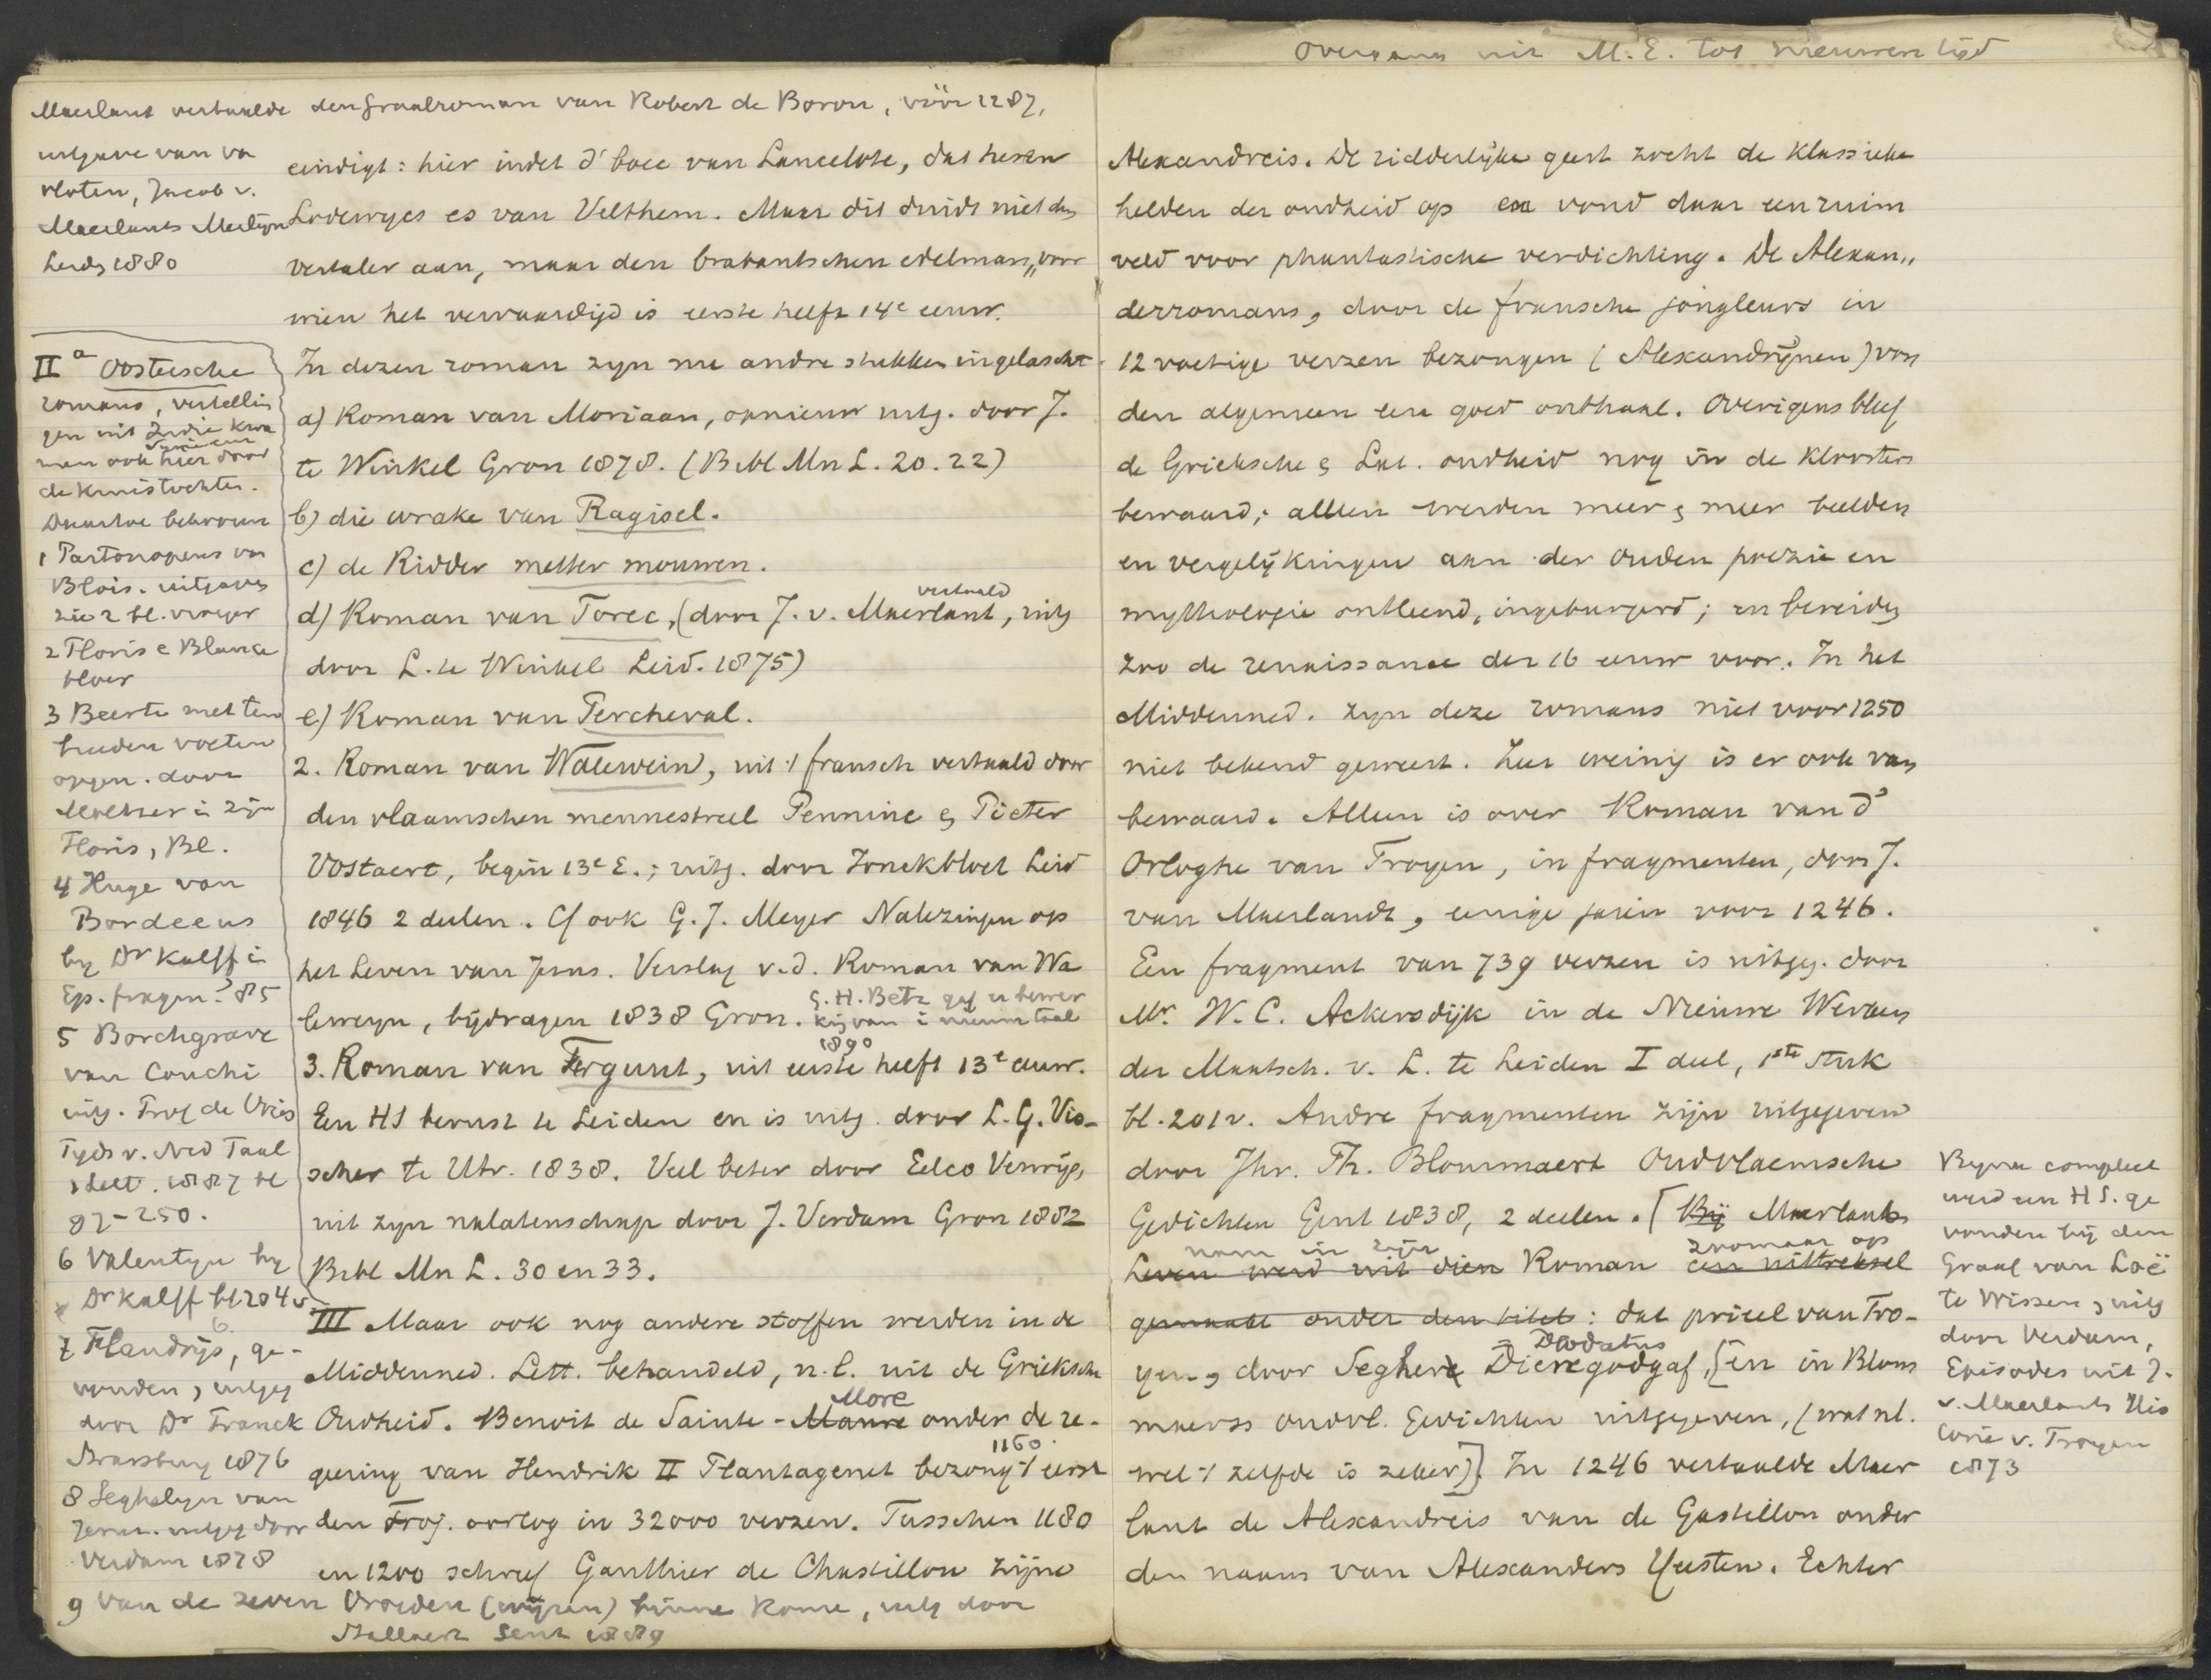 Maerlant vertaalde den graalroman van Robert de Boron, vóór 1287,
uitgave van va
vloten, Jacob v.
Maerlants Merlijn
Leids 1880
eindigt: hier indet d' boec van Lancelote, dat heren
Lodewycs es van Velthem. Maar dit duidt niet den
vertaler aan, maar den brabantschen edelman, voor
wien het vervaardigd is eerste helft 14e eeuw.
In dezen roman zyn nu andre stukken ingelascht.
a) Roman van Moriaan, opnieuw uitg. door J.
te Winkel Gron 1878. (Bibl Mn L. 20. 22)
b) die wrake van Ragisel.
c) de Ridder metter mouwen.
d) Roman van Torec, (door J. v. Maerlant vertaald, uitg
door L. te Winkel Leid. 1875)
e) Roman van Percheval.
2. Roman van Walewein, uit 't fransch vertaald door
den vlaamschen mennestreel Pennine & Pieter
Vostaert, begin 13e E.; uitg. door Jonckbloet Leid
1846 2 deelen. Cf ook G. J. Meyer Nalezingen op
het Leven van Jesus. Verslag v.d. Roman van Wa
leweyn, bydragen 1838 Gron. G. H. Betz gaf er bewer
king van i nieuw taal
1890
3. Roman van Ferguut, uit eerste helft 13e eeuw.
Een HS berust te Leiden en is uitg. door L. G. Vis-
scher te Utr. 1838. Veel beter door Eelco Verwijs,
uit zyn nalatenschap door J. Verdam Gron 1882
Bibl Mn L. 30 en 33.
III Maar ook nog andere stoffen werden in de
Middenned. Lett. behandeld, n.l. uit de Grieksche
Oudheid. Benoit de Sainte-Maure More onder de re-
geering van Hendrik II Plantagenet bezong 't eerst 1160.
den Troj. oorlog in 32000 verzen. Tusschen 1180
en 1200 schreef Gauthier de Chastillon zijne
IIa Oostersche
romans, vertellin
gen uit Indie kwa
men ook hier door
de kruistochten.
Daartoe behooren
1 Partonopeus van
Blois. uitgaves
zie 2 bl. vroeger
2 Floris e Blance
bloer
3 Beerte met ten
breeden voeten
opgen. door
Moltzer i zijn
Floris, Bl.
4 Huge van
Bordeeus
by Dr Kalff i
Ep. fragm. 85
5 Borchgrave
van Couchi
uitg. Prof de Vries
Tyds v. Ned Taal
& Lett. 1887 bl
97-250.
6 Valentyn by
Dr Kalff bl 204 v
7 Flandrijs, ge-
vonden, uitgeg
door Dr Franck
Strassburg 1876
8 Seghelyn van
Jerus. uitgeg door
Verdam 1878
9 Van de zeven Vroeden (wijzen) binne Rome, uitg door
Stallaert Gent 1889
Overgang uit M.E. tot nieuwen tijd
Alexandreis. De ridderlijke geest zocht de klassieke
helden der oudheid op en vond daar een ruim
veld voor phantastische verdichting. De Alexan„
derromans, door de fransche jongleurs in
12 voetige verzen bezongen (Alexandrijnen) von
den algemeen een goed onthaal. Overigens bleef
de Grieksche & Lat. oudheid nog in de kloosters
bewaard; alleen werden meer & meer beelden
en vergelijkingen aan der Ouden poëzie en
mythologie ontleend, ingeburgerd; en bereidy
zoo de renaissance der 16 eeuw voor. In het
Middenned. zyn deze romans niet voor 1250
niet bekend geweest. Zeer weinig is er ook van
bewaard. Alleen is over Roman van d'
Orloghe van Troyen, in fragmenten, door J.
van Maerlandt, eenige jaren voor 1246.
Een fragment van 739 verzen is uitgeg. door
Mr. W. C. Ackersdijk in de Nieuwe Werken
der Maatsch. v. L. te Leiden I deel, 1ste stuk
bl. 201 v. Andre fragmenten zijn uitgegeven
door Jhr. Th. Blommaert Oudvlaemsche
Gedichten Gent 1838, 2 deelen. [Bij Maerlant
nam in zijn zoomaar op
Leven werd uit dien Roman een uittreksel
gemaakt onder den titel: dat prieel van Tro-
yen, door Seghere Dieregodgaf Diodatus, [en in Blom
maerts oudvl. Gedichten uitgegeven, (wat nl.
wel 't zelfde is zeker)] In 1246 vertaalde Maer
lant de Alexandreis van de Gastillon onder
den naam van Alexanders Yeesten. Echter
Byna compleet
werd een HS. ge
vonden bij den
Graaf van Loë
te Wissen, uitg
door Verdam,
Episodes uit J.
v. Maerlants His
torie v. Troyen
1873